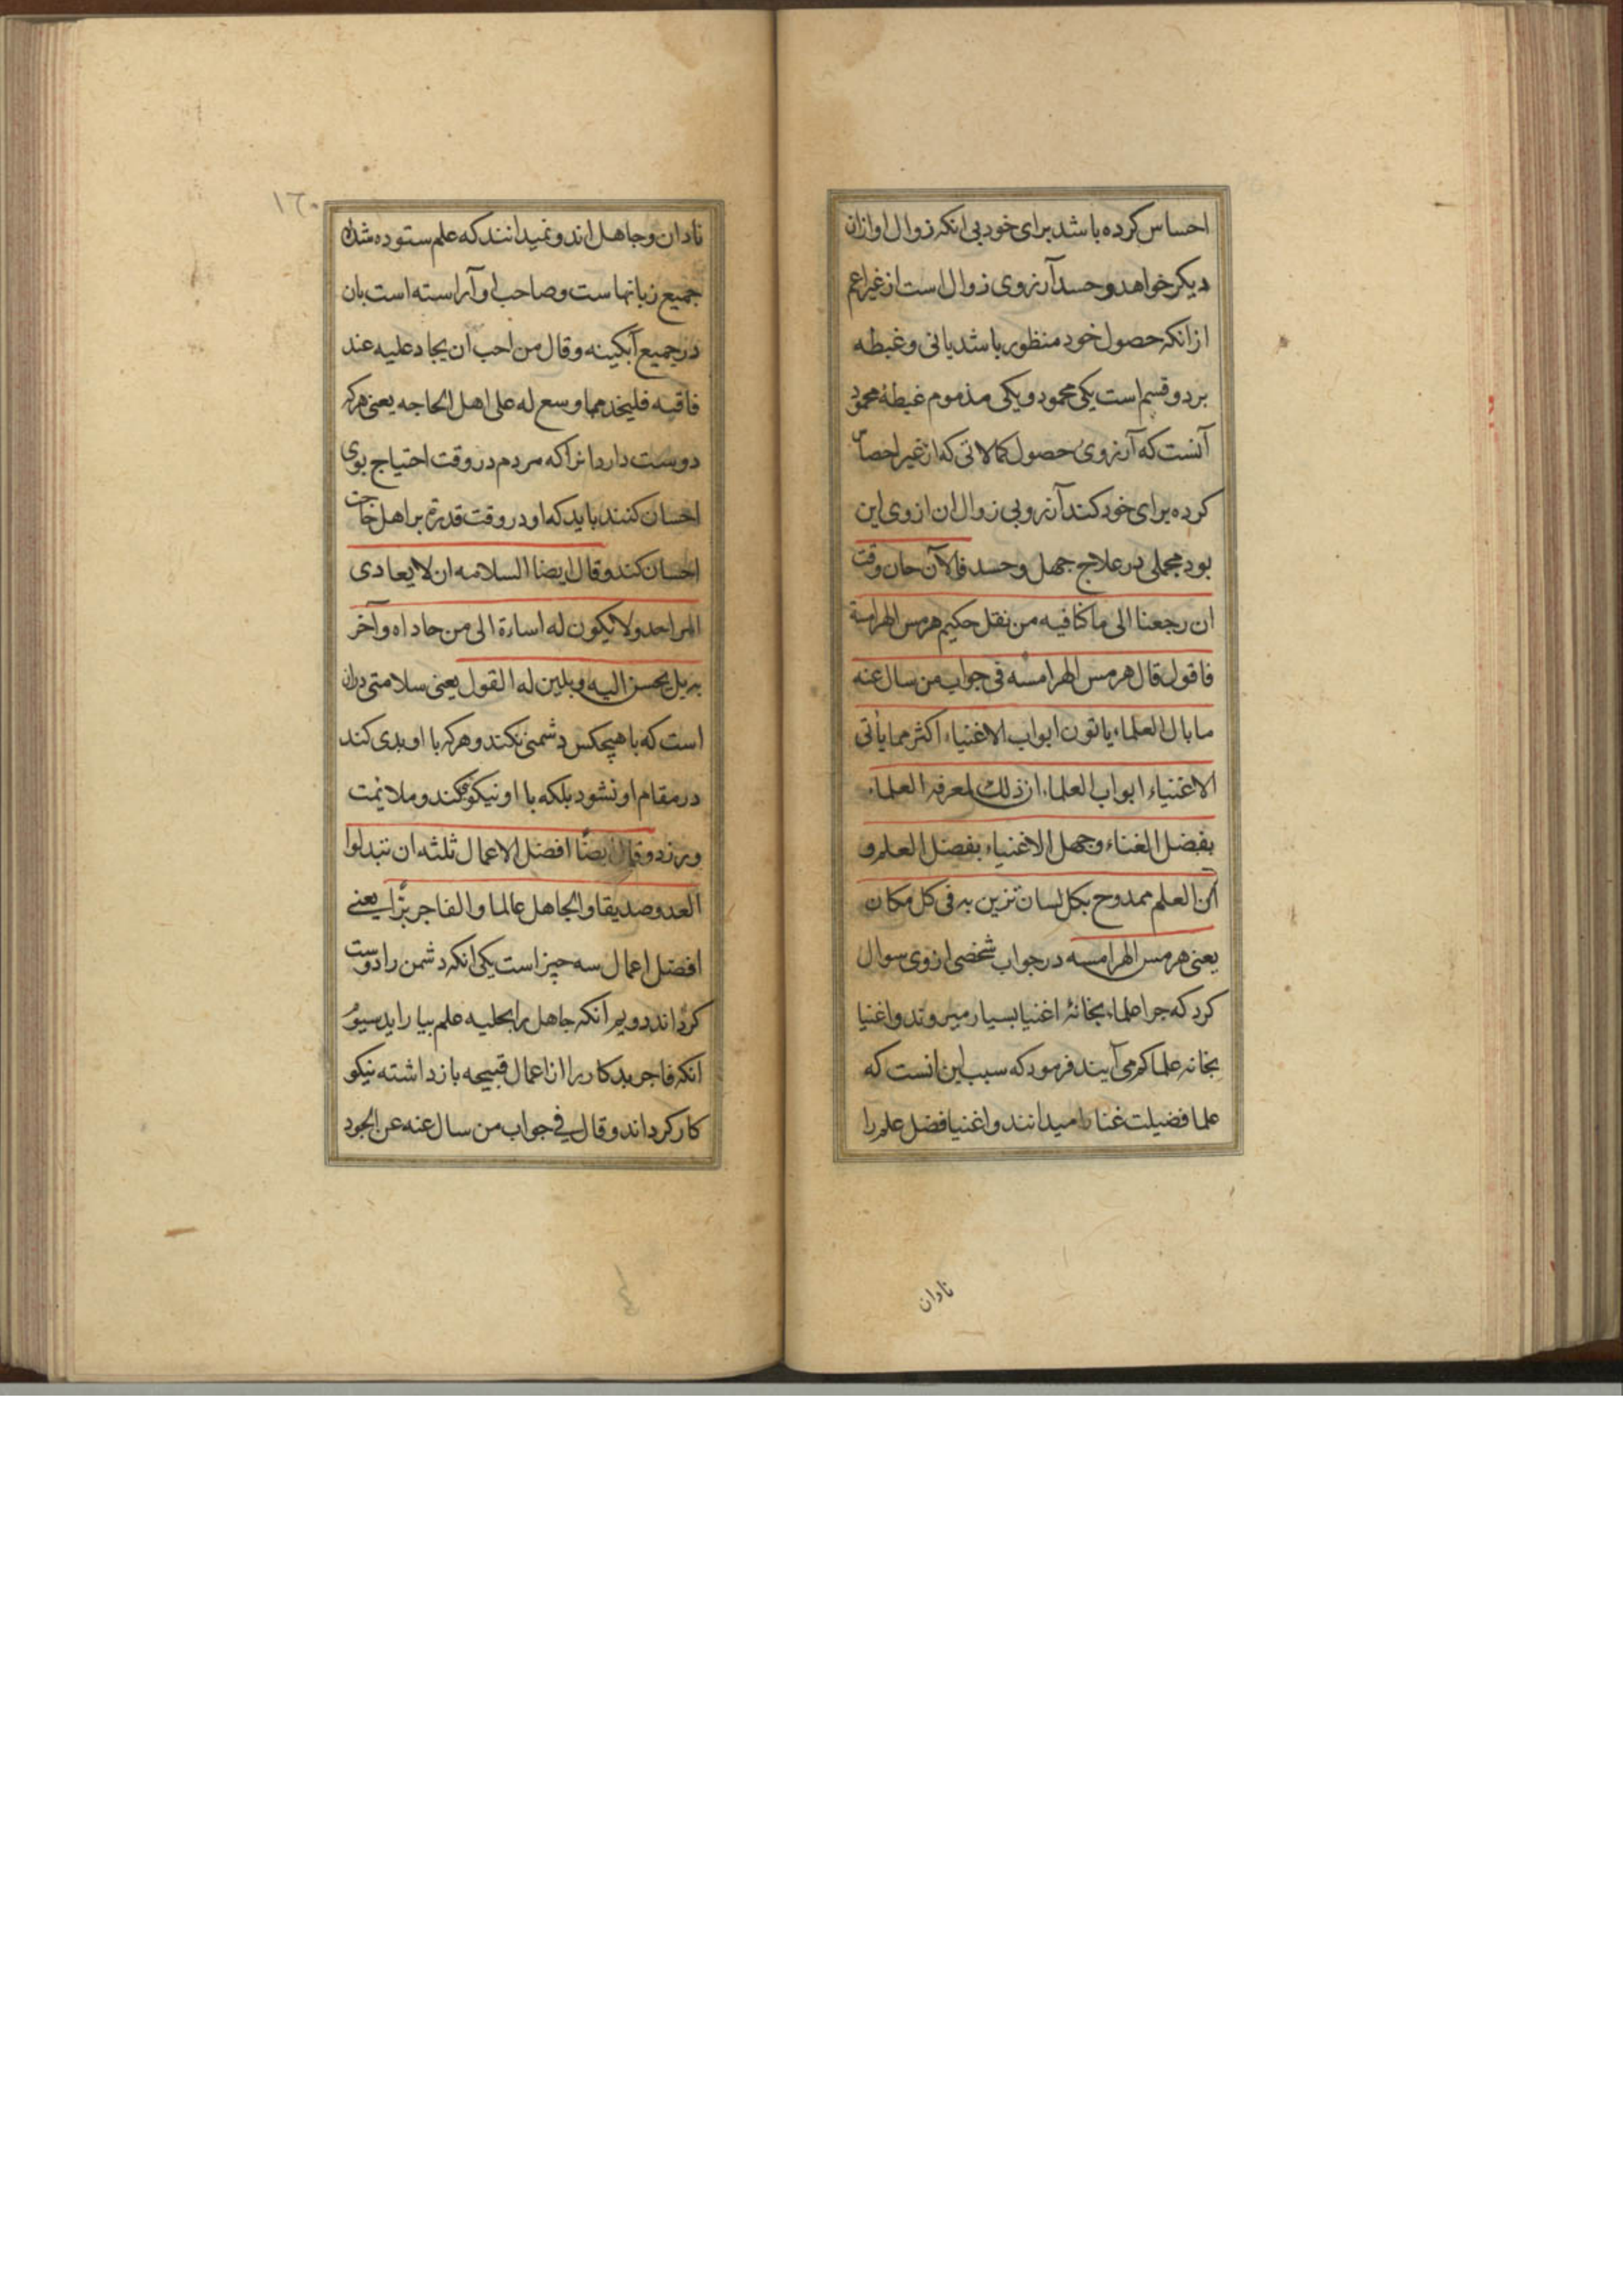 احساس کرده باشد برای خود بی انکه زوال او ازان
دیکر خواهد و حسد آرزوی زوال است از غیر اعم
از انکه حصول خود منظور باشد یا نی و غبطه
بر دو قسم است یکی محمود و یکی مذموم غبطهٔ محمود
آنست که آرزوی حصول کمالاتی که از غیر احساس
کرده برای خود کند آرزو بی زوال ان ازوی این
بود مجملی در علاج جهل و حسد فالآن حان وقت
ان رجعنا الی ما کنا فیه من نقل حکیم هرمس الهرامسة
فاقول قال هرمس الهرامسه فی جواب من سال عنه
ما بال العلماء یاتون ابواب الاغنیاء اکثر مما یأتی
الاغنیاء ابواب العلماء ان ذلك لمعرفه العلماء
بفضل الغناء و جهل الاغنیاء بفضل العلم و
ان العلم ممدوح بکل لسان تزین به فی کل مکان
یعنی هرمس الهرامسه در جواب شخصی ازوی سوال
کرد که چرا علماء بخانهٔ اغنیا بسیار میروند و اغنیا
بخانه علما کم می آیند فرمود که سبب این انست که
علما فضیلت غنا را میدانند و اغنیا فضل علم را
نادان
١٦٠
نادان و جاهل اند و نمیدانند که علم ستوده شده
جمیع زبانهاست و صاحب او آراسته است بان
در جمیع آبکینه و قال من احب ان یجاد علیه عند
فاقته فلیجد مما وسع له علی اهل الحاجه یعنی هر که
دوست دارد انرا که مردم در وقت احتیاج بوی
احسان کنند باید که او در وقت قدرة بر اهل حاجت
احسان کند و قال ایضا السلامه ان لا یعادی
المر احد و لا یکون له اساءة الی من حاداه و آخر
به بل یحسن الیه و یلین له القول یعنی سلامتی دران
است که با هیچکس دشمنی نکند و هر که با او بدی کند
در مقام او نشود بلکه با او نیکویی کند و ملایمت
ورزد و قال ایضا افضل الاعمال ثلثه ان تبدلوا
العدو صدیقا و الجاهل عالما و الفاجر برّا یعنے
افضل اعمال سه چیز است یکی انکه دشمن را دوست
کرداند دویم انکه جاهل را بحلیه علم بیاراید سیوم
انکه فاجر بدکار را از اعمال قبیحه باز داشته نیکو
کار کرداند و قال فے جواب من سال عنه عن الجود